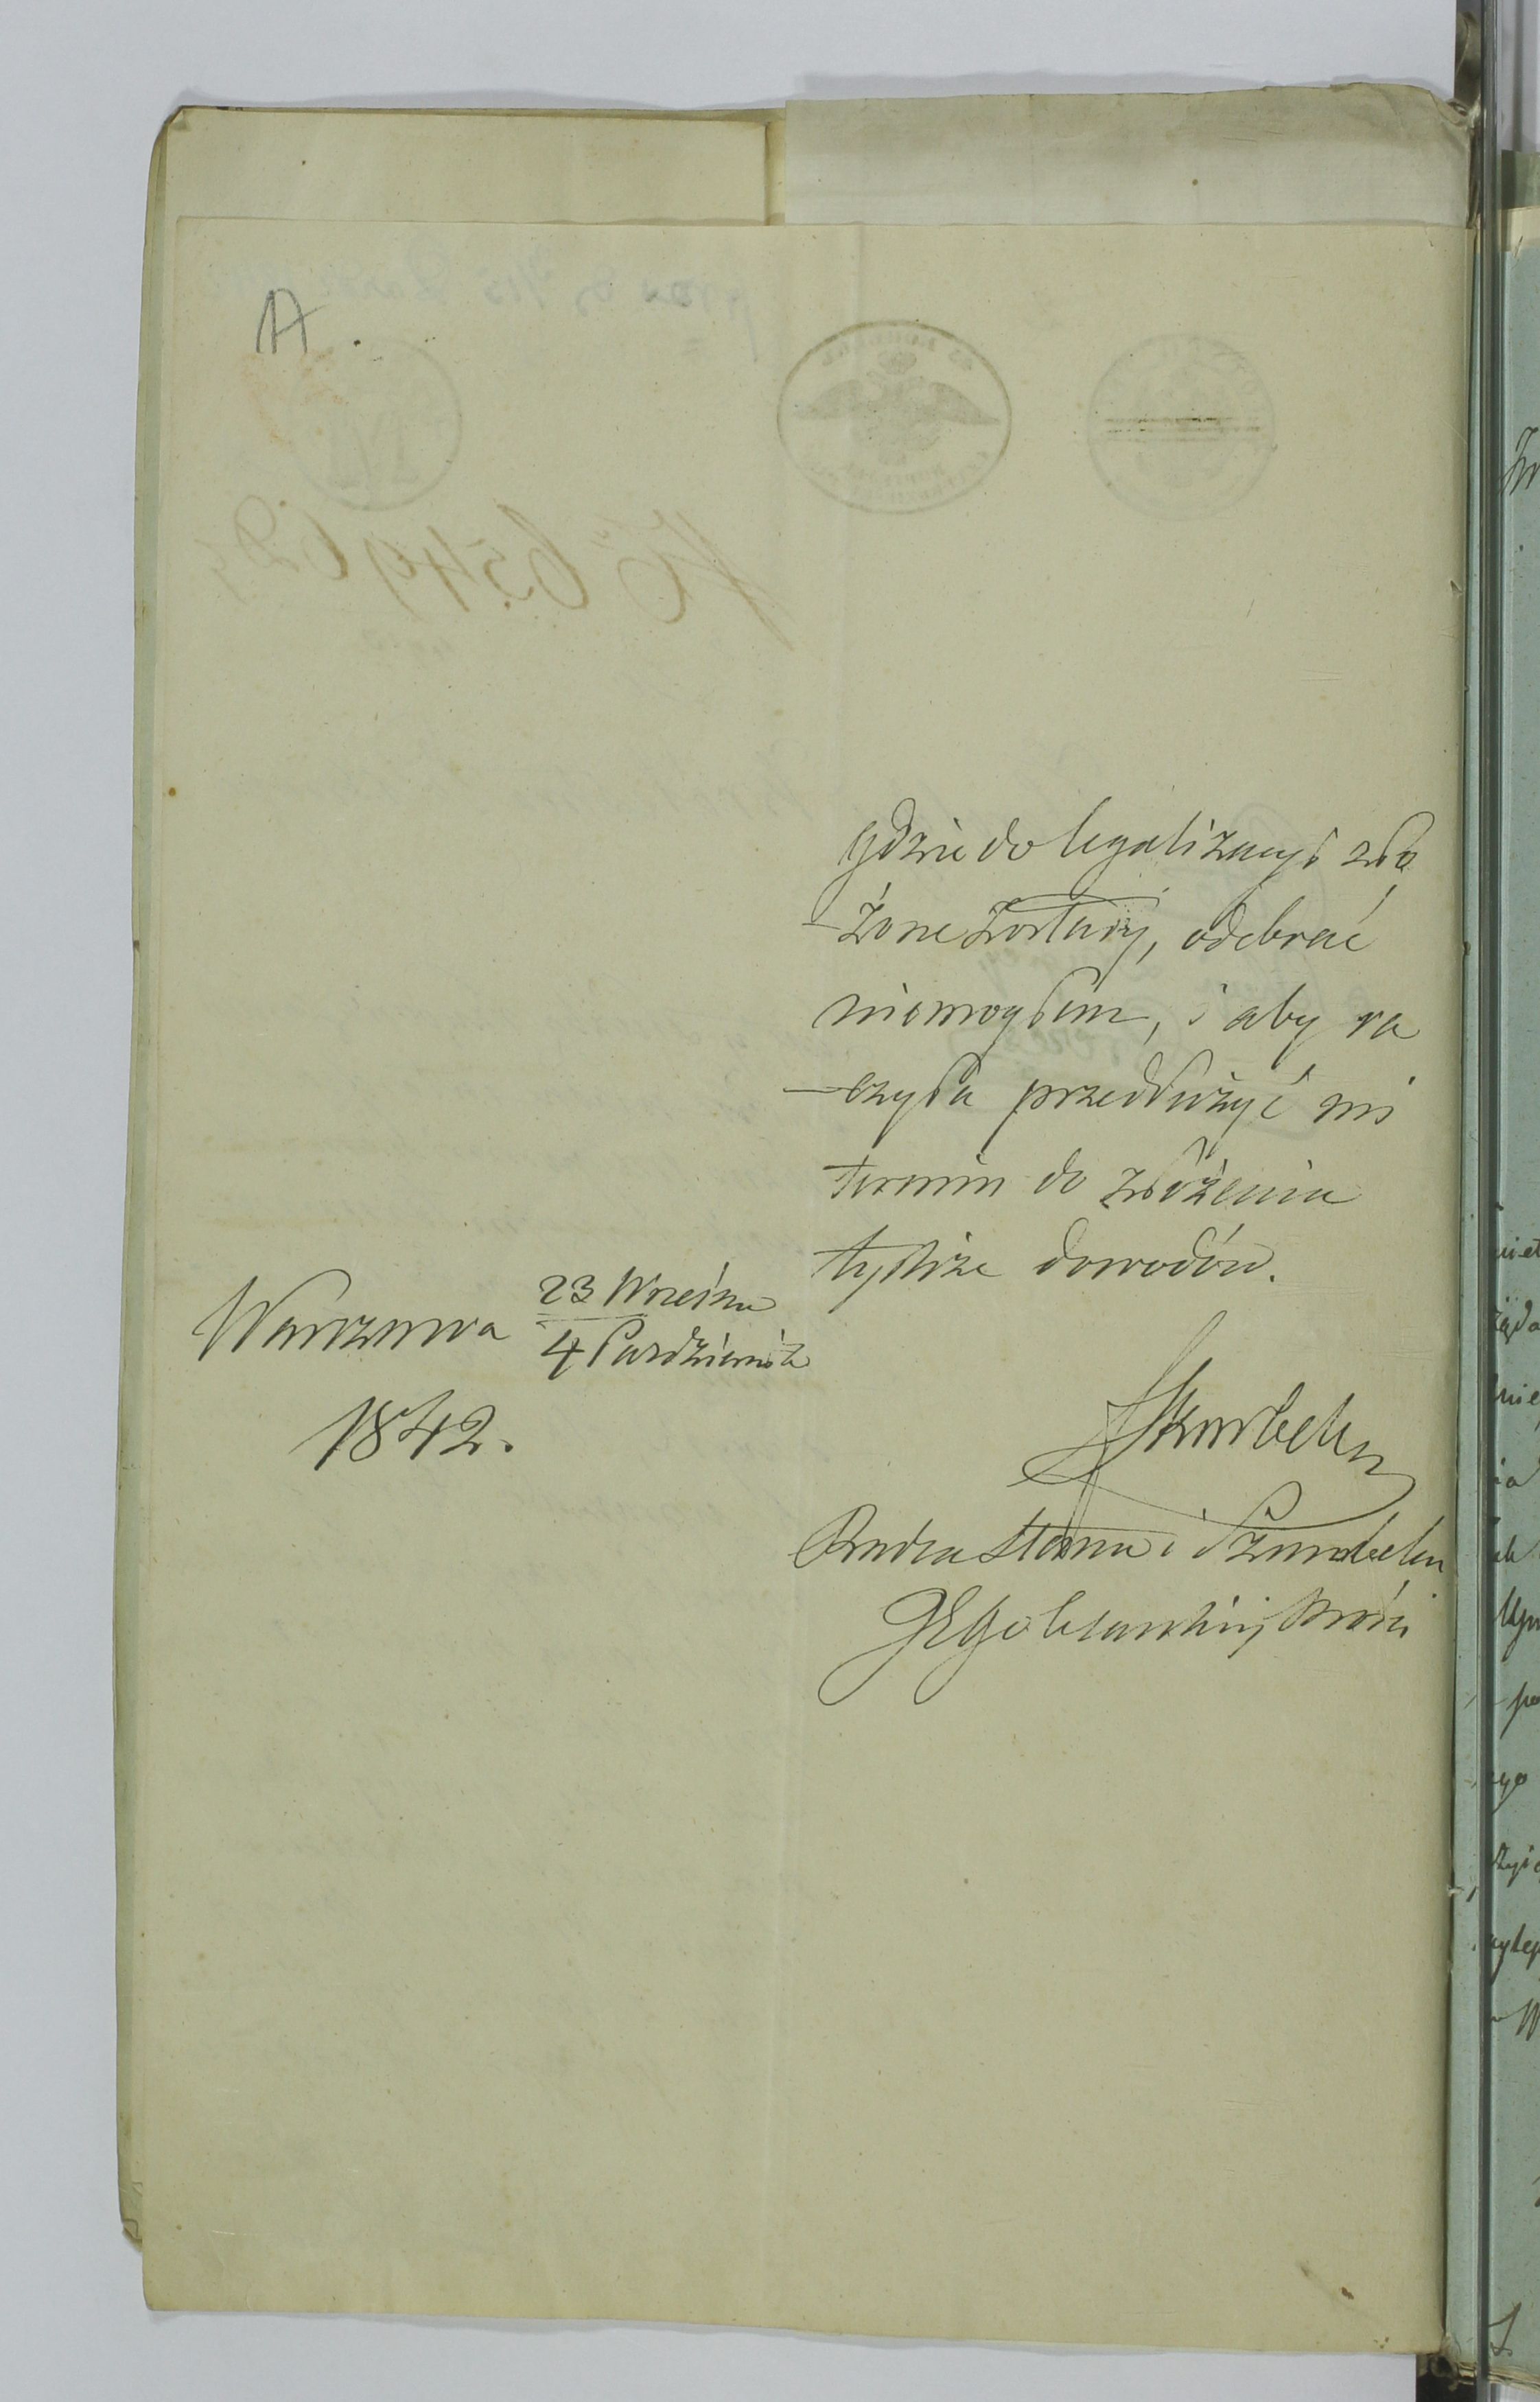 A.
gdzie do legalizacyi zło
-żone zostały, odebrać
niemogłem, i aby ra
-czyła przedłużyć mi
termin do złożenia
tychże dowodów.
Warszawa 23 Wrześna
4 Październik
1842.
Radca Stanu i Szambelan